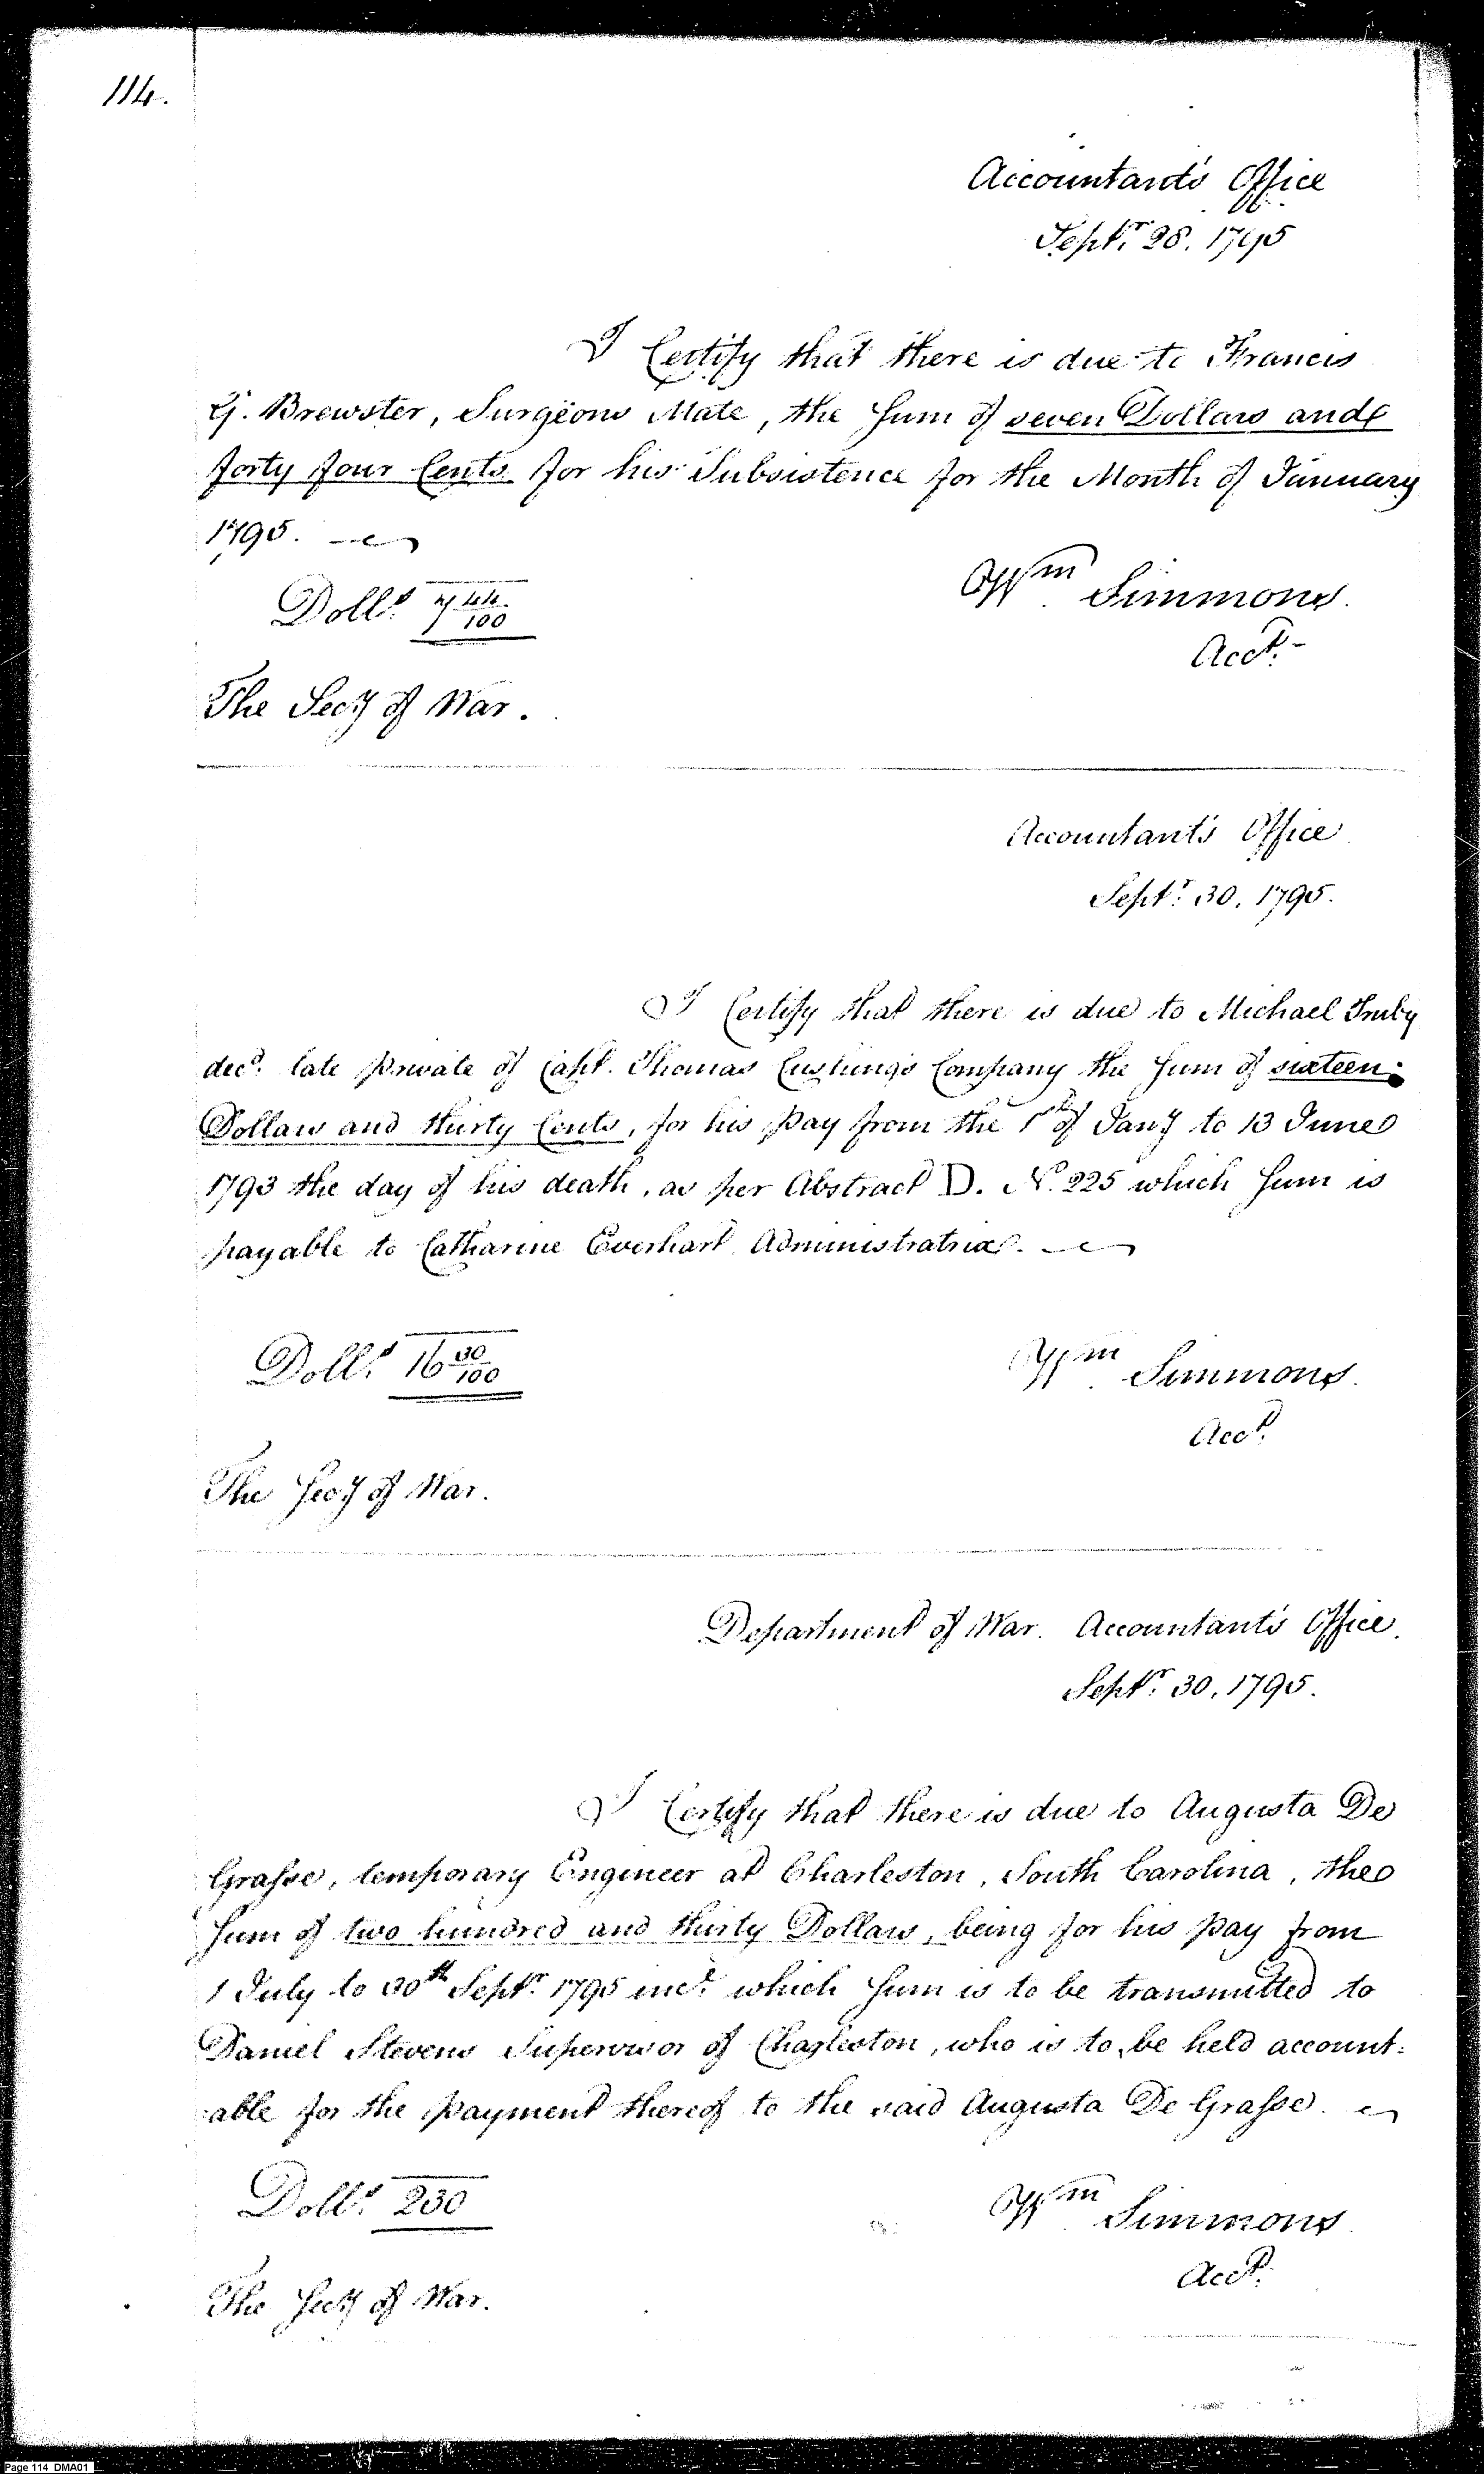 114.
Accountant's Office
Septr. 28. 1795
I Certify that there is due to Francis
G. Brewster, Surgeons Mate, the Sum of seven Dollars and
forty four Cents for his Subsistence for the Month of January
1795.
Dolls. 7 44/100
Wm Simmons.
Acct.
The Secy of War.
Accountant's Office
Septr. 30. 1795.
I Certify that there is due to Michael
decd. late private of Capt. Thomas Cushing's Company the Sum of sixteen
Dollars and thirty Cents, for his pay from the 1st of Jany to 13 June
1793 the day of his death, as per Abstract D. No. 225 which Sum is
payable to Catharine Everhart Administratrix.
Dolls. 16 30/100
Wm Simmons.
Acct.
The Secy of War.
Department of War. Accountant's Office.
Septr. 30. 1795.
I Certify that there is due to Augusta De
Grasse, temporary Engineer at Charleston, South Carolina, the
Sum of two hundred and thirty Dollars, being for his pay from
1 July to 30th Septr. 1795 incl. which Sum is to be transmitted to
Daniel Stevens Supervisor of Charleston, who is to be held account=
able for the payment thereof to the said Augusta De Grasse.
Dolls. 230
Wm Simmons
Acct.
The Secy of War.
Page 114 DMA01